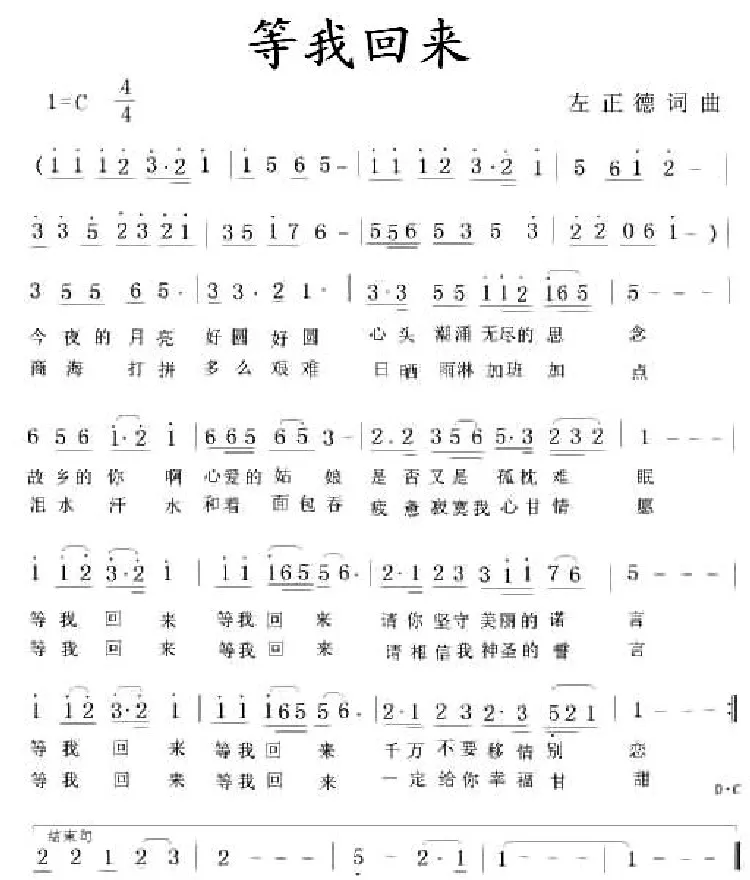 等我回来
1=C 4/4 左正德词曲
(1 1 1 2 3·2 1 | 1 5 6 5 - | 1 1 1 2 3·2 1 | 5 6 1 2 - |
3 3 5 2 3 2 1 | 3 5 1 7 6 - | 5 5 6 5 3 5 3 | 2 2 0 6 1 - )
3 5 5 6 5· | 3 3·2 1· | 3·3 5 5 1 1 2 1 6 5 | 5 - - - |
今夜的月亮 好圆好圆 心头潮涌无尽的思 念
商海 打拼多么艰难 日晒雨淋加班加 点
6 5 6 1·2 1 | 6 6 5 6 5 3 - | 2.2 3 5 6 5·3 2 3 2 | 1 - - - |
故乡的你 啊心爱的姑 娘 是否又是孤枕难 眠
泪水汗 水和着 面包吞 疲惫寂寞我心甘情 愿
1 1 2 3·2 1 | 1 1 1 6 5 5 6· | 2·1 2 3 3 1 1 7 6 | 5 - - - |
等我 回 来 等我回 来 请你坚守美丽的诺 言
等我 回 来 等我回 来 请相信我神圣的誓 言
1 1 2 3·2 1 | 1 1 1 6 5 5 6· | 2·1 2 3 2·3 5 2 1 | 1 - - - :‖
等我 回 来 等我回 来 千万不要移情别 恋
等我 回 来 等我回 来 一定给你幸福甘 甜
D·C
结束句
2 2 1 2 3 | 2 - - - | 5 - 2·1 | 1 - - - | 1 - - - ‖